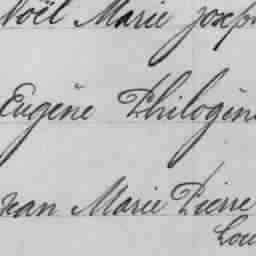 Noël Marie Josep
Eugène Philogèn
Jean Marie Pierre
Lou